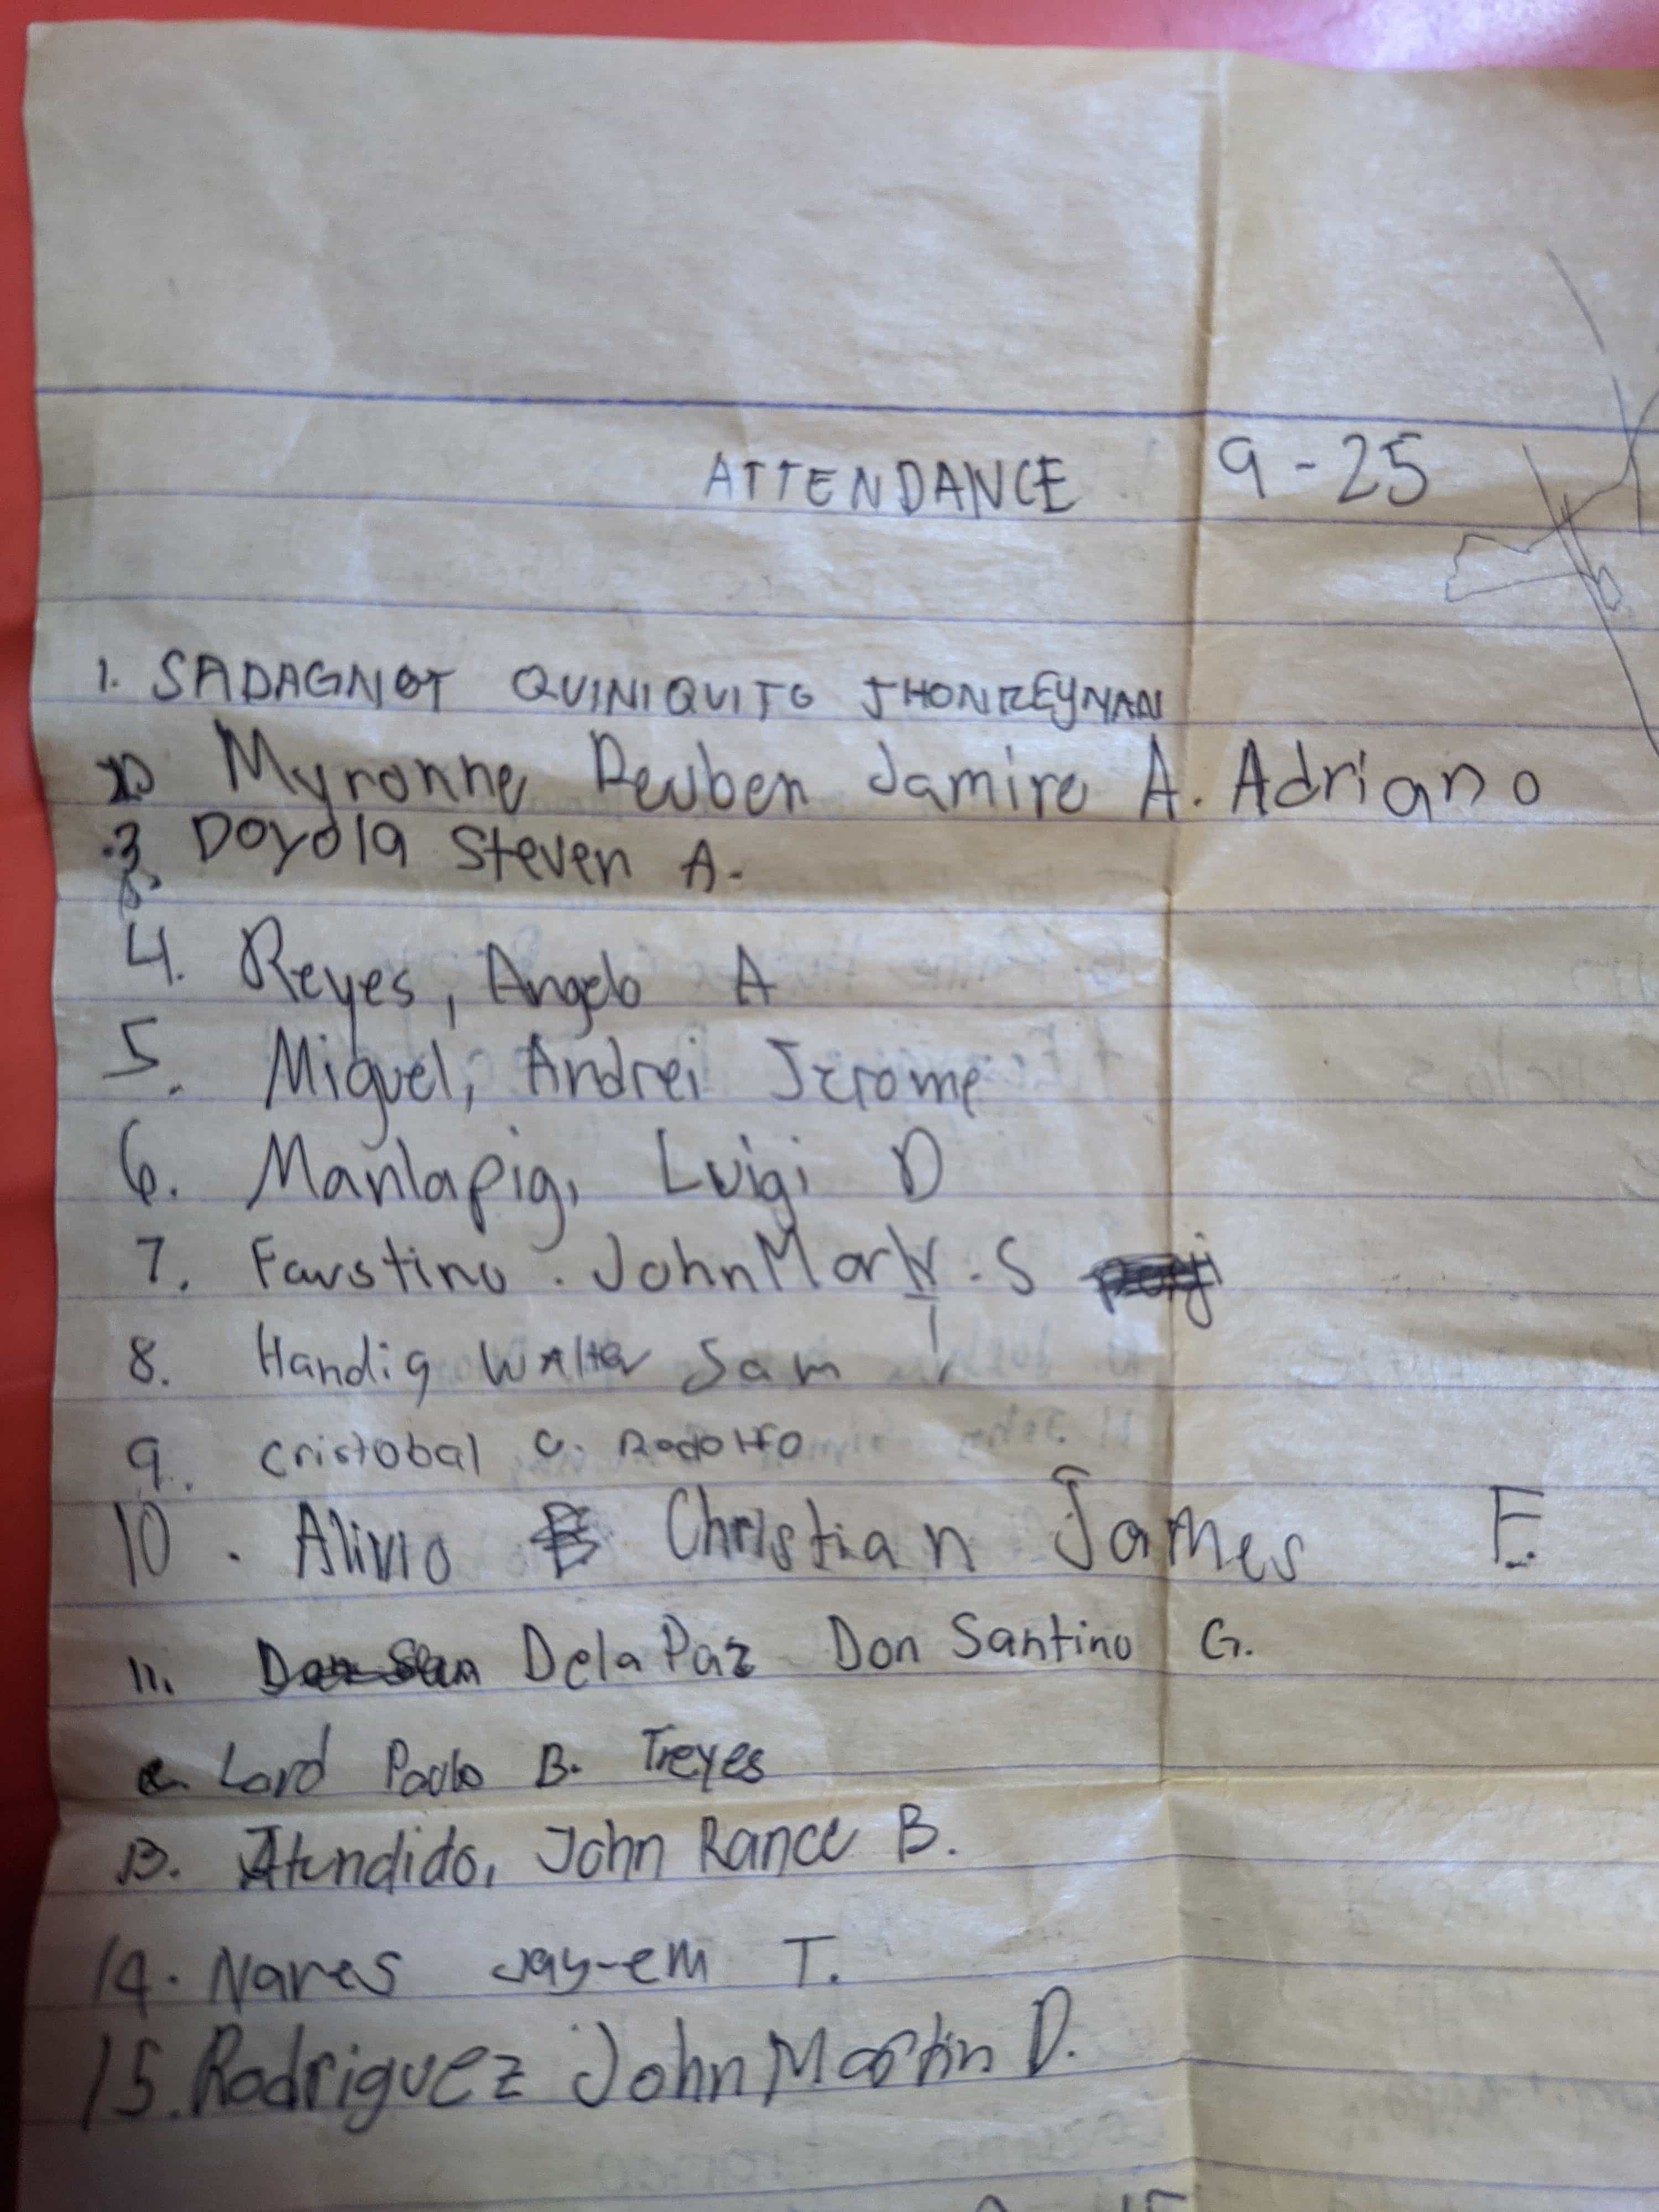 ATTENDANCE 9-25
1. SADAGNOT QUINIQUITO JHONREYNAN
Myronne Reuben Jamire A. Adriano
3 Doyola Steven A.
4. Reyes, Angelo A
5. Miguel, Andrei Jerome
6. Manlapig, Luigi D
7. Faustino. John Mark. S
8. Handig Walter Sam
9. Cristobal C. Rodolfo
10. Alivio Christian James F.
11. Dela Paz Don Santino G.
Lord Paulo B. Treyes
13. Atendido, John Rance B.
14. Nares Jay-em T.
15. Rodriguez John Martin D.